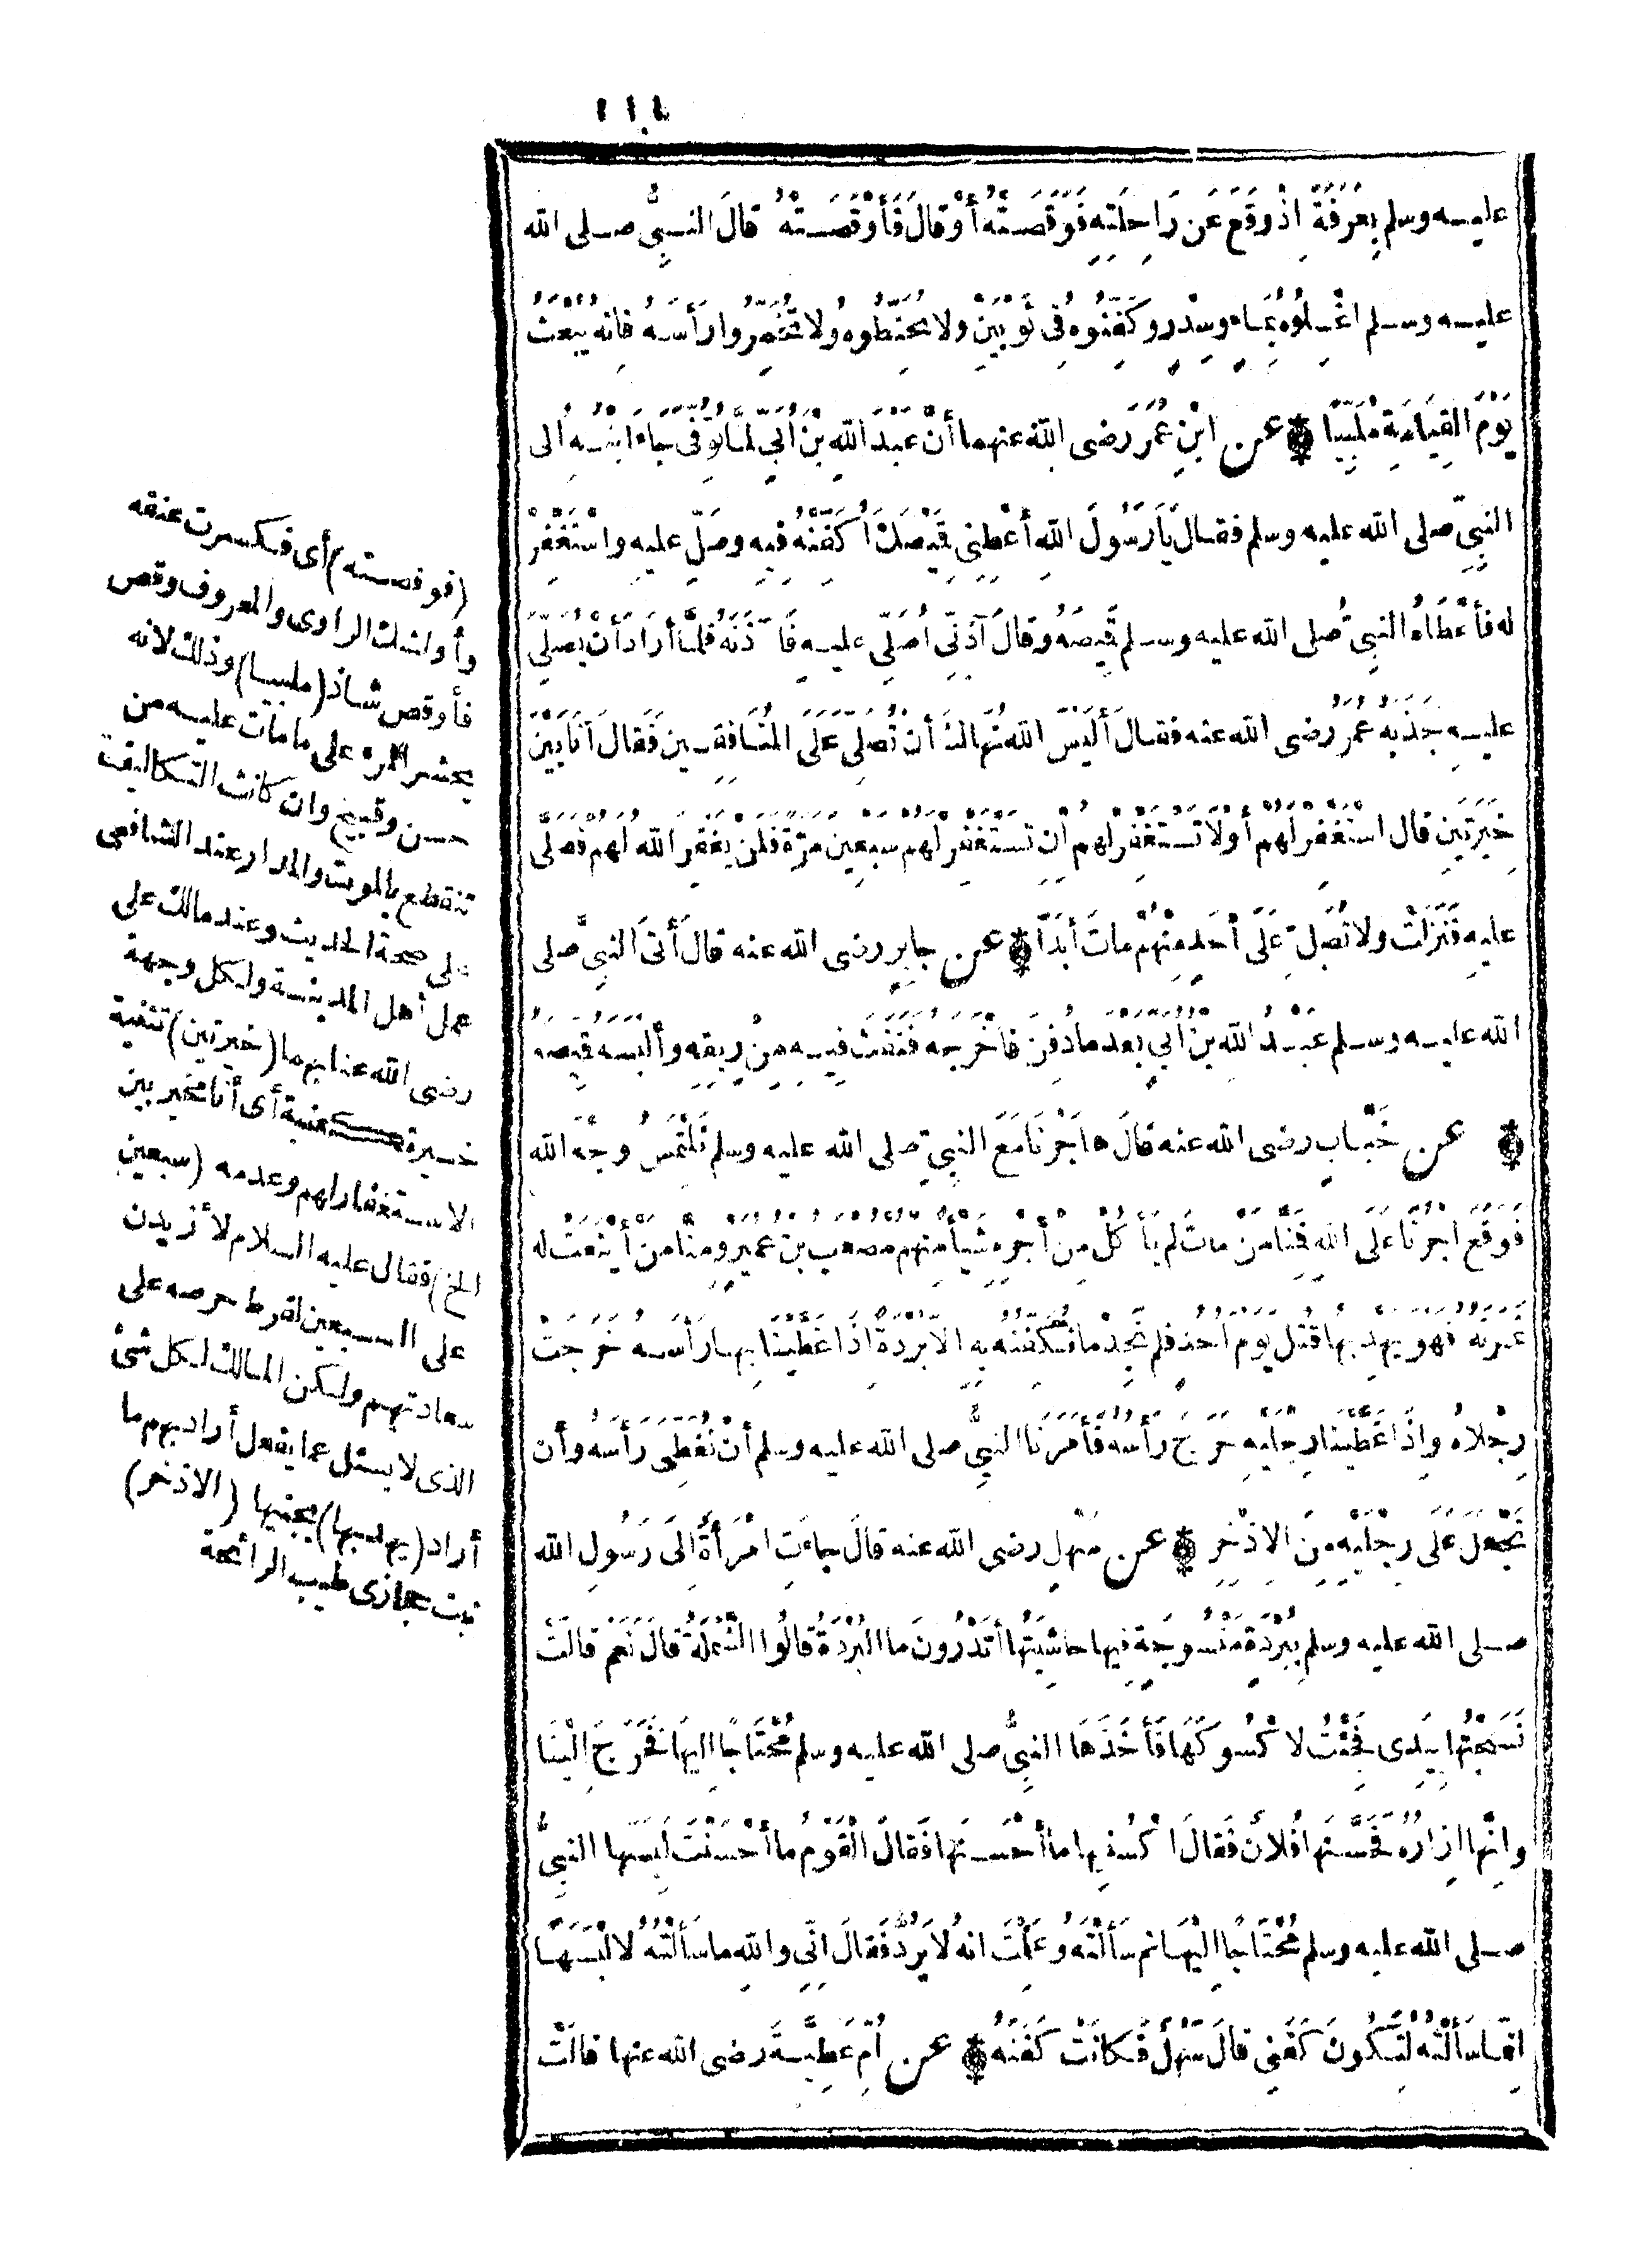 عليه وسلم بِعَرَفَةَ اِذْ وَقَعَ عَن رَاحِلَتِهِ فَوَقَصَتْهُ أَوْ قالَ فَأَوْقَصَتْهُ قالَ النبىُّ صلى الله
عليه وسلم اغْسِلُوهُ بِمَاءٍ وسِدْرٍ وكَفِّنُوهُ فِى ثَوْبَيْنِ ولا تُحَنِّطُوهُ ولا تُخَمِّرُوا رَأسَهُ فانِهُ يُبْعَثُ
يَوْمَ القِيَامَةِ مُلَبِّيًا ۞ عن ابْنِ عُمَرَ رَضى الله عنهما أنَّ عَبْدَ اللهِ بْنَ أُبَىٍّ لَمَّا تُوُفِّىَ جَاءَ ابْنُهُ اُلى
النبىِّ صلى الله عليه وسلم فقال يَارَسُولَ اللهِ أَعْطِنِى قَمِيْصَكَ أُكَفِّنْهُ فِيهِ وصَلِّ عليهِ واسْتَغْفِرْ
له فأعْطَاهُ النبىُّ صلى الله عليه وسلم قَمِيصَهُ وقالَ آذِنِّى أُصَلِّى عليهِ فَآذَنَهُ فلمَّا أرَادَ أنْ يُصَلِّىَ
عليهِ جَذَبَهُ عُمَرُ رَضى الله عنه فقال أَلَيْسَ اللهُ نَهَاكَ أنْ تُصَلِّىَ عَلَى المُنَافِقِينَ فَقَالَ أنَا بَيْنَ
خِيَرَتَيْنِ قال اسْتَغْفِرْ لَهُمْ أوْ لاَ تَسْتَغْفِرْ لَهُمْ اِنْ تَسْتَغْفِرْ لهُم سبعِين مرّةً فلَنْ يغْفِرَ اللهُ لهُمْ فصَلَّى
عليهِ فَنَزَلَتْ ولا تُصَلِّ عَلَى أحَدٍ مِنْهُمْ ماتَ أبَدًا ۞ عن جابِرٍ رضى الله عنه قالَ أتَى النبىُّ صلى
الله عليه وسلم عَبْدَ اللهِ بْنَ أُبَىٍّ بَعْدَ ما دُفِنَ فأخْرَجَهُ فَنَفَثَ فِيهِ مِنْ رِيقِهِ وألْبَسَهُ قَمِيصَهُ
۞ عن خَبَّابٍ رضى الله عنه قالَ هاجَرْنَا مَعَ النبىِّ صلى الله عليه وسلم نَلْتَمِسُ وجْهَ الله
فَوَقَعَ أجْرُنَا عَلَى اللهِ فَمِنَّا مَنْ ماتَ لم يَأكُلْ مِنْ أجْرِهِ شَيْأً مِنْهُم مصعَبُ بنُ عُمَيْرٍ ومِنَّا مَنْ أيْنَعَتْ له
ثَمَرَتُهُ فهو يهدِبُها قُتِلَ يَوْمَ أحُدٍ فلم نَجِدْ ما نُكَفِّنُهُ بِهِ اِلاّ بُرْدَةً اِذَا غَطَّيْنَا بِها رَأسَهُ خَرَجَتْ
رِجْلاهُ واِذَا غَطَّيْنَا رِجْلَيْهِ خَرَجَ رَأسُهُ فأَمَرَنَا النبىُّ صلى الله عليه وسلم أنْ نُغَطِّىَ رَأسَهُ وأن
نَجْعَلَ عَلَى رِجْلَيْهِ مِنَ الاِذْخِرِ ۞ عن سَهْلٍ رضى الله عنه قالَ جاءَتِ امْرَأَةٌ اِلَى رَسُولِ الله
صلى الله عليه وسلم بِبُرْدَةٍ مَنْسُوجَةٍ فِيها حاشِيَتُها أتَدْرُونَ ما البُرْدَةُ قالُوا الشَّمْلَةُ قالَ نَعَمْ قالَتْ
نَسَجْتُها بِيَدِى فَجِئْتُ لأكْسُوكَهَا فأَخَذَهَا النبىُّ صلى الله عليه وسلم مُحْتَاجًا اِليهَا فَخَرَجَ اِلَيْنَا
وانَّها اِزَارُهُ فَحَسَّنَها فُلانٌ فَقالَ اكْسُنِيها ما أحْسَنَها فَقالَ الْقَوْمُ ما أحْسَنْتَ لَبِسَها النبىُّ
صلى الله عليه وسلم مُحْتَاجًا اِلَيْهَا ثم سَألْتَهُ وعَلِمْتَ انهُ لا يَرُدُّ فَقالَ اِنِّى واللهِ ما سَألْتُهُ لأَلْبَسَهَا
اِنَّما سَألْتُهُ لِتَكُونَ كَفَنِى قالَ سَهْلٌ فَكانَتْ كَفَنَهُ ۞ عن اُمِّ عَطِيَّةَ رَضى الله عنها قالَتْ
(فوقصته) أى فكسرت عنقه
وأو لشك الراوى والمعروف وقص
فأوقص شاذ (ملبيا) وذلك لانه
يحشر المرء على ما مات عليه من
حسن وقبيح وان كانت التكاليف
تنقطع بالموت والمدار عند الشافعى
على صحة الحديث وعند مالك على
عمل أهل المدينة ولكل وجهة
رضى الله عنا بهما (خيرتين) تثنية
خيرة كعنبة أى أنا مخير بين
الاستغفار لهم وعدمه (سبعين
الخ) فقال عليه السلام لأزيدن
على السبعين لفرط حرصه على
سعادتهم ولكن المالك لكل شئ
الذى لا يسئل عما يفعل أراد بهم ما
أراد (يهدبها) يجنيها (الاذخر)
نبت حجازى طيب الرائحة